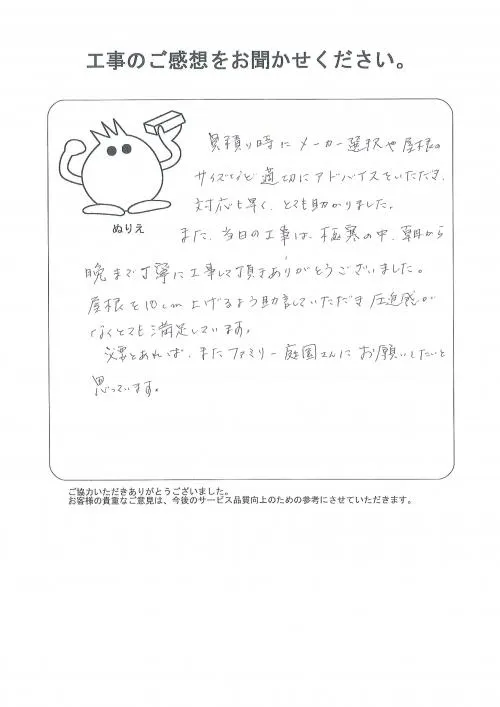 工事のご感想をお聞かせください。
ぬりえ
見積り時にメーカー選択や屋根の
サイズなど適切にアドバイスをいただき、
対応も早く、とても助かりました。
また、当日の工事は、極寒の中、朝から
晩まで丁寧に工事して頂きありがとうございました。
屋根を10cm上げるよう助言していただき圧迫感が
なくとても満足しています。
必要とあれば、またファミリー庭園さんにお願いしたいと
思っています。
ご協力いただきありがとうございました。
お客様の貴重なご意見は、今後のサービス品質向上のための参考にさせていただきます。